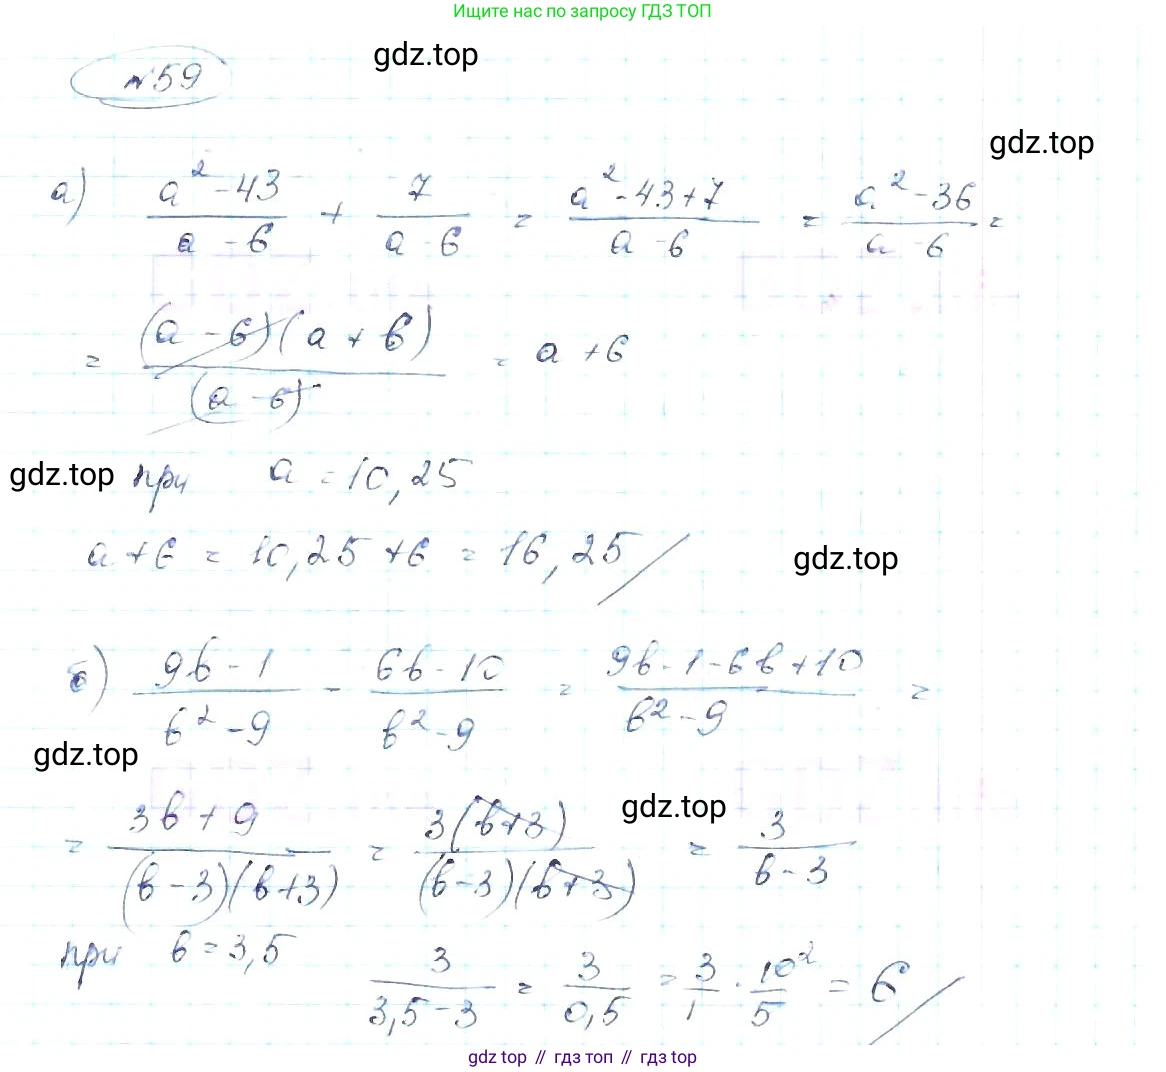 Ищите нас по запросу ГДЗ ТОП
gdz.top
№59
gdz.top
а) (a² - 43)/(a - 6) + 7/(a - 6) = (a² - 43 + 7)/(a - 6) = (a² - 36)/(a - 6) =
= (a - 6)(a + 6)/(a - 6) = a + 6
gdz.top
при a = 10,25
a + 6 = 10,25 + 6 = 16,25
gdz.top
б) (9b - 1)/(b² - 9) - (6b - 10)/(b² - 9) = (9b - 1 - 6b + 10)/(b² - 9) =
gdz.top
gdz.top
= (3b + 9)/((b - 3)(b + 3)) = 3(b + 3)/((b - 3)(b + 3)) = 3/(b - 3)
при b = 3,5
3/(3,5 - 3) = 3/0,5 = 3/1 · 10²/5 = 6
gdz top // гдз топ // гдз top